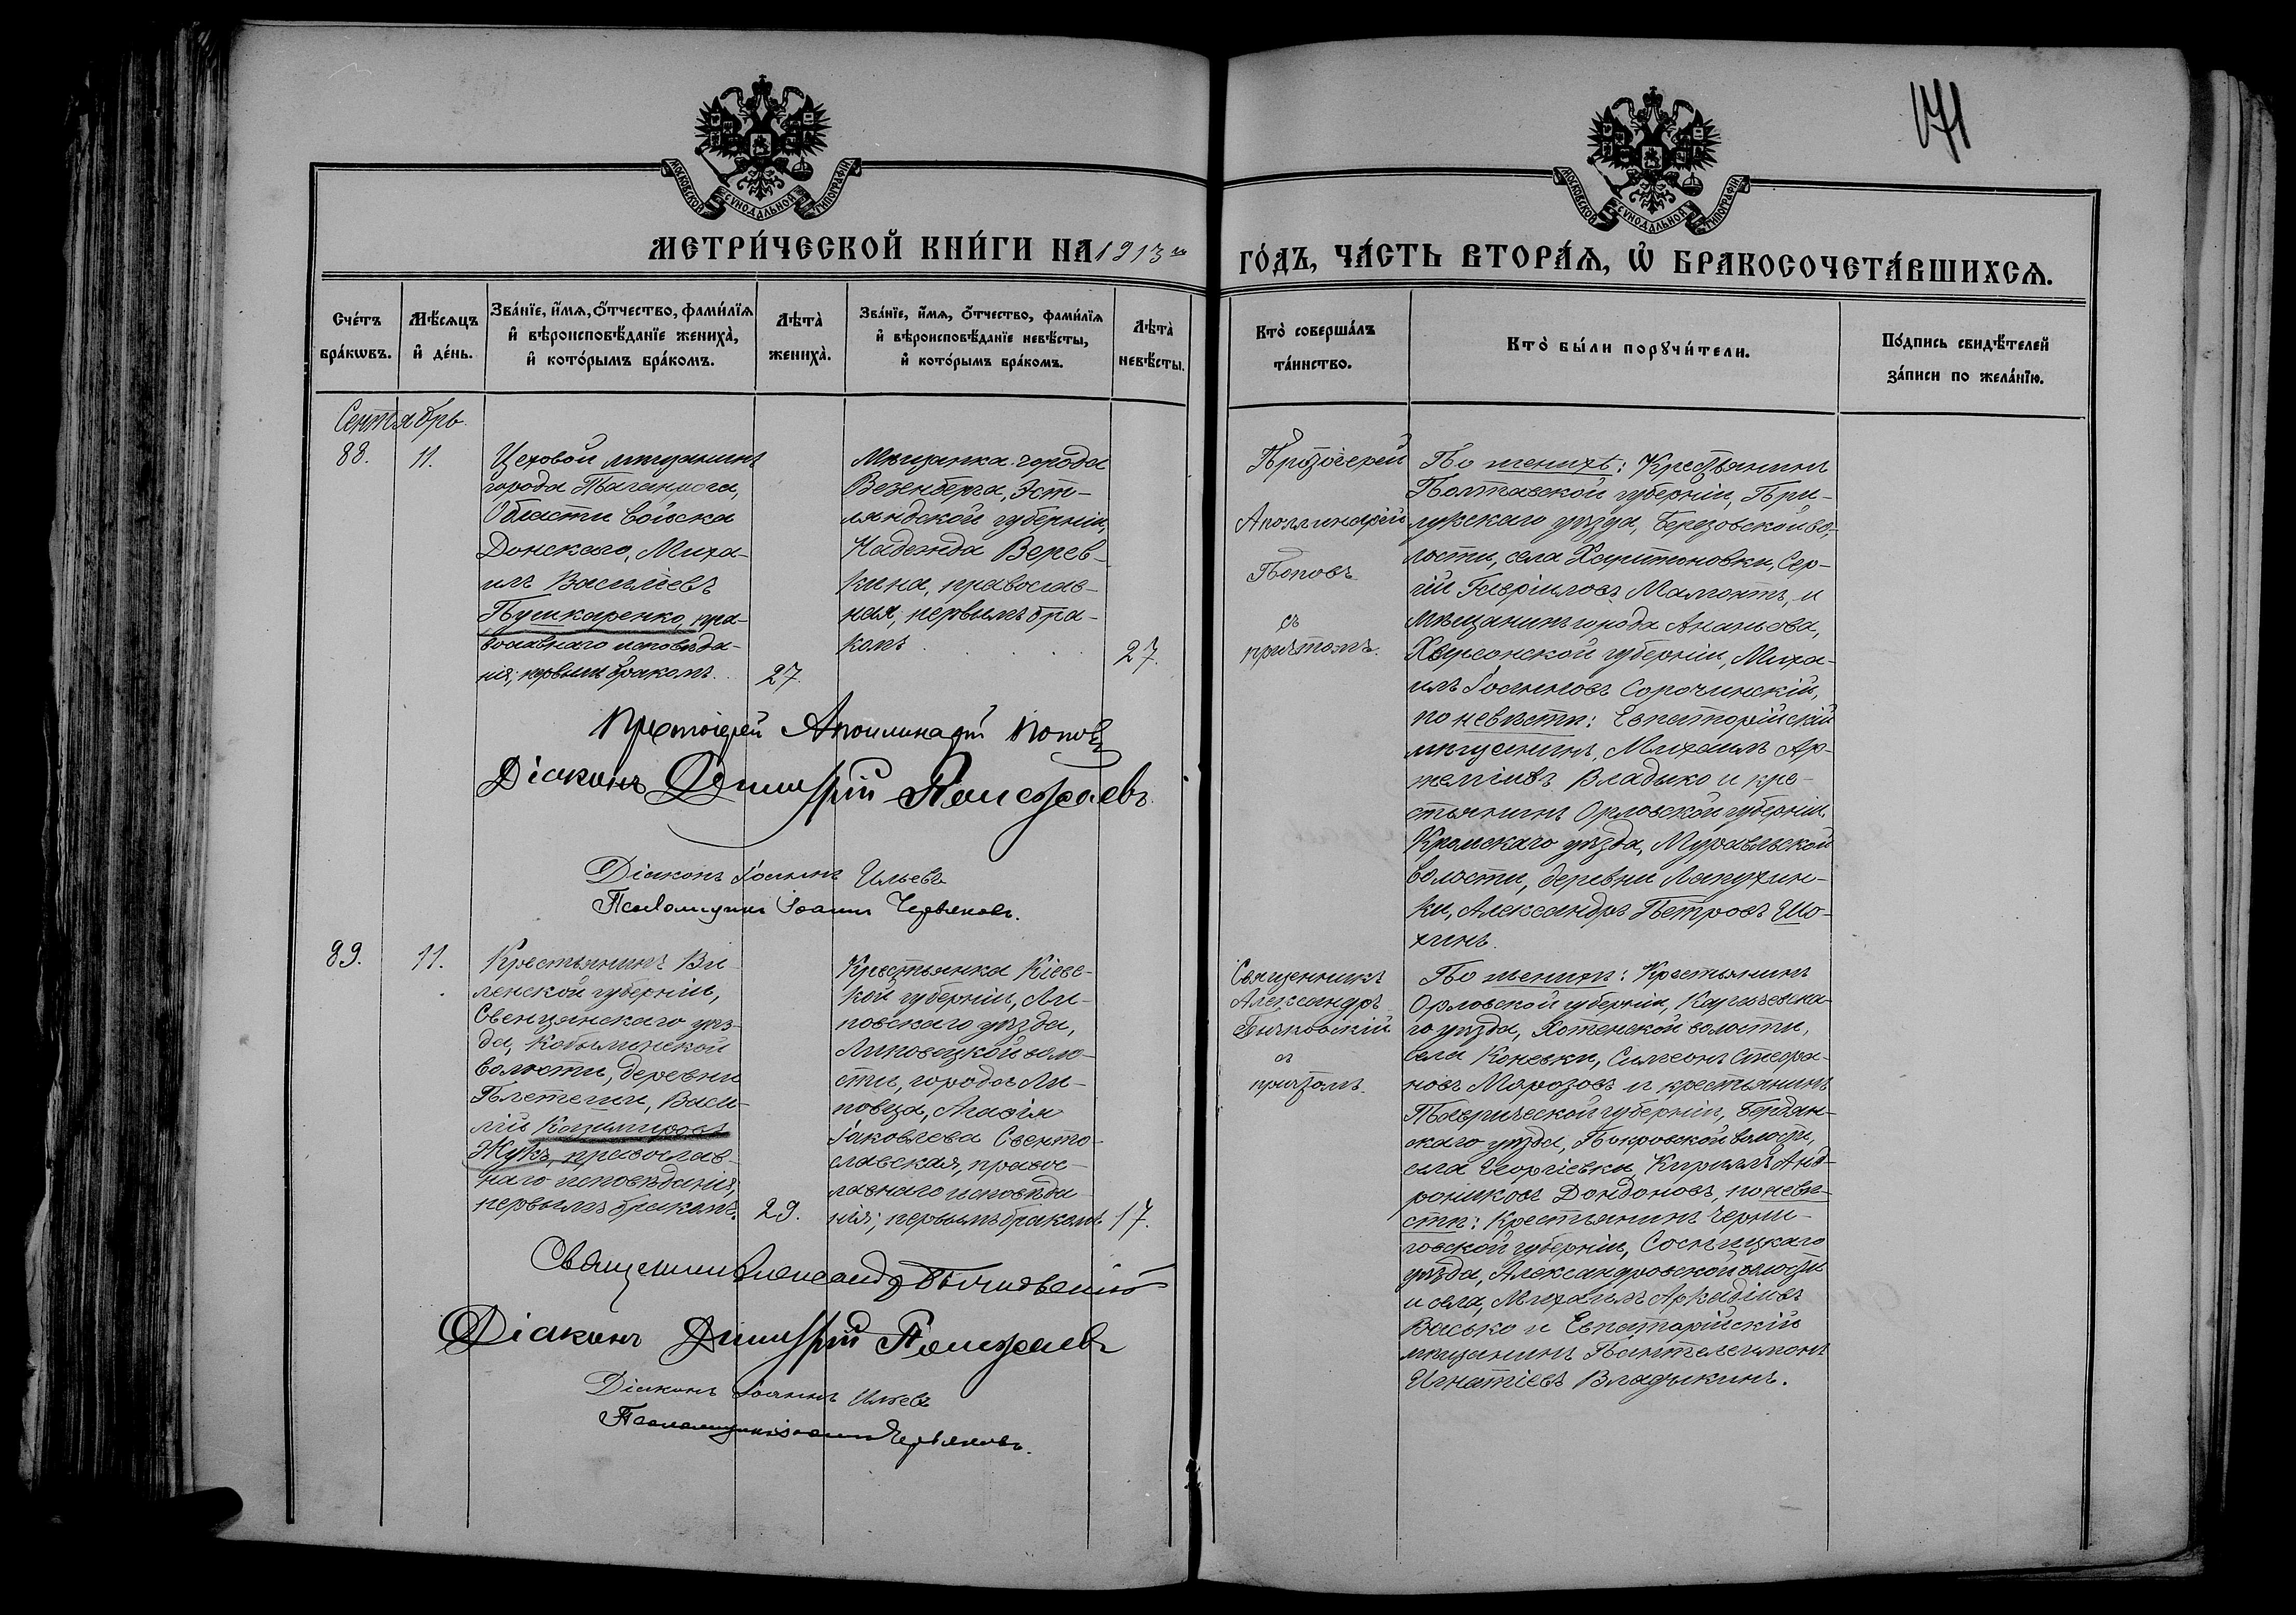 171
МОСКОВСКОЙ СУНОДАЛЬНОЙ ТИПОГРАФІИ
МОСКОВСКОЙ СУНОДАЛЬНОЙ ТИПОГРАФІИ
МЕТРИ́ЧЕСКОЙ КНИ́ГИ НА 1913 й
ГО́ДЪ, ЧА́СТЬ ВТОРА́Ѧ, Ѡ҆ БРАКОСОЧЕТА́ВШИХСѦ.
Сче́тъ бра́кѡвъ.
Мѣ́сѧцъ и҆ де́нь.
Зва́нїе, и҆́мѧ, ѻ҆́тчество, фами́лїѧ
и҆ вѣроисповѣ́данїе жениха̀,
и҆ кото́рымъ бра́комъ.
Лѣта̀ жениха̀.
Зва́нїе, и҆́мѧ, ѻ҆́тчество, фами́лїѧ
и҆ вѣроисповѣ́данїе невѣ́сты,
и҆ кото́рымъ бра́комъ.
Лѣта̀ невѣ́сты.
Кто̀ соверша́лъ
та́инство.
Кто̀ бы́ли порꙋчи́тели.
По́дпись свидѣ́телей
за́писи по жела́нїю.
Сентябрь
88.
11.
Цеховой мѣщанинъ
города Таганрога,
Области войска
Донскаго, Миха-
илъ Василіевъ
Пушкаренко, пра-
вославнаго исповѣда-
нія, первымъ бракомъ.
27.
Мѣщанка города
Везенберга, Эст-
ляндской губерніи
Надежда Верев-
кина, православ-
ная, первымъ бра-
комъ
27.
Протоіерей
Аполлинарій
Поповъ
съ
причтомъ.
По женихѣ: Крестьянинъ
Полтавской губерніи, При-
лукскаго уѣзда, Березовской во-
лости, села Харитоновки, Сер-
гій Гавріиловъ Мамонтъ, и
мѣщанинъ города Ананьева,
Херсонской губерніи, Миха-
илъ Іоанновъ Сорочинскій,
по невѣстѣ: Евпаторійскій
мѣщанинъ, Михаилъ Ар-
теміевъ Владыко и кре-
стьянинъ Орловской губерніи,
Кромскаго уѣзда, Муравльской
волости, деревни Лапухин-
ки, Александръ Петровъ Шо-
хинъ.
Протоіерей Аполлинарій Поповъ
Діаконъ Димитрій
Діаконъ Іоаннъ Ильевъ
Псаломщикъ Іоаннъ Червяковъ.
89.
11.
Крестьянинъ Ви-
ленской губерніи,
Свенцянскаго уѣз-
да, Кобыльнской
волости, деревни
Плетеши, Васи-
лій Казимировъ
Жукъ, православ-
наго исповѣданія,
первымъ бракомъ.
29.
Крестьянка Кіевс-
кой губерніи, Ли-
повскаго уѣзда,
Липовецкой воло-
сти, города Ли-
повца, Агафія
Іаковлева Свенто-
славская, правос-
лавнаго исповѣда-
нія; первымъ бракомъ
17.
Священникъ
Александръ
съ
причтомъ.
По женихѣ: Крестьянинъ
Орловской губерніи, Карачевска-
го уѣзда, Хотенской волости,
села Коневки, Симеонъ Стефа-
новъ Морозовъ и крестьянинъ
Таврической губерніи, Бердян-
скаго уѣзда, Покровской волости,
села Георгіевки, Кириллъ Анд-
рониковъ Дондоновъ, по невѣ-
стѣ: Крестьянинъ Черни-
говской губерніи, Сосницкаго
уѣзда, Александровской волости
и села, Михаилъ Аркадіевъ
Васько и Евпаторійскій
мѣщанинъ Пантелеимонъ
Игнатіевъ Владыкинъ.
Священникъ Александръ
Діаконъ Димитрій
Діаконъ Іоаннъ Ильевъ
Псаломщикъ Іоаннъ Червяковъ.